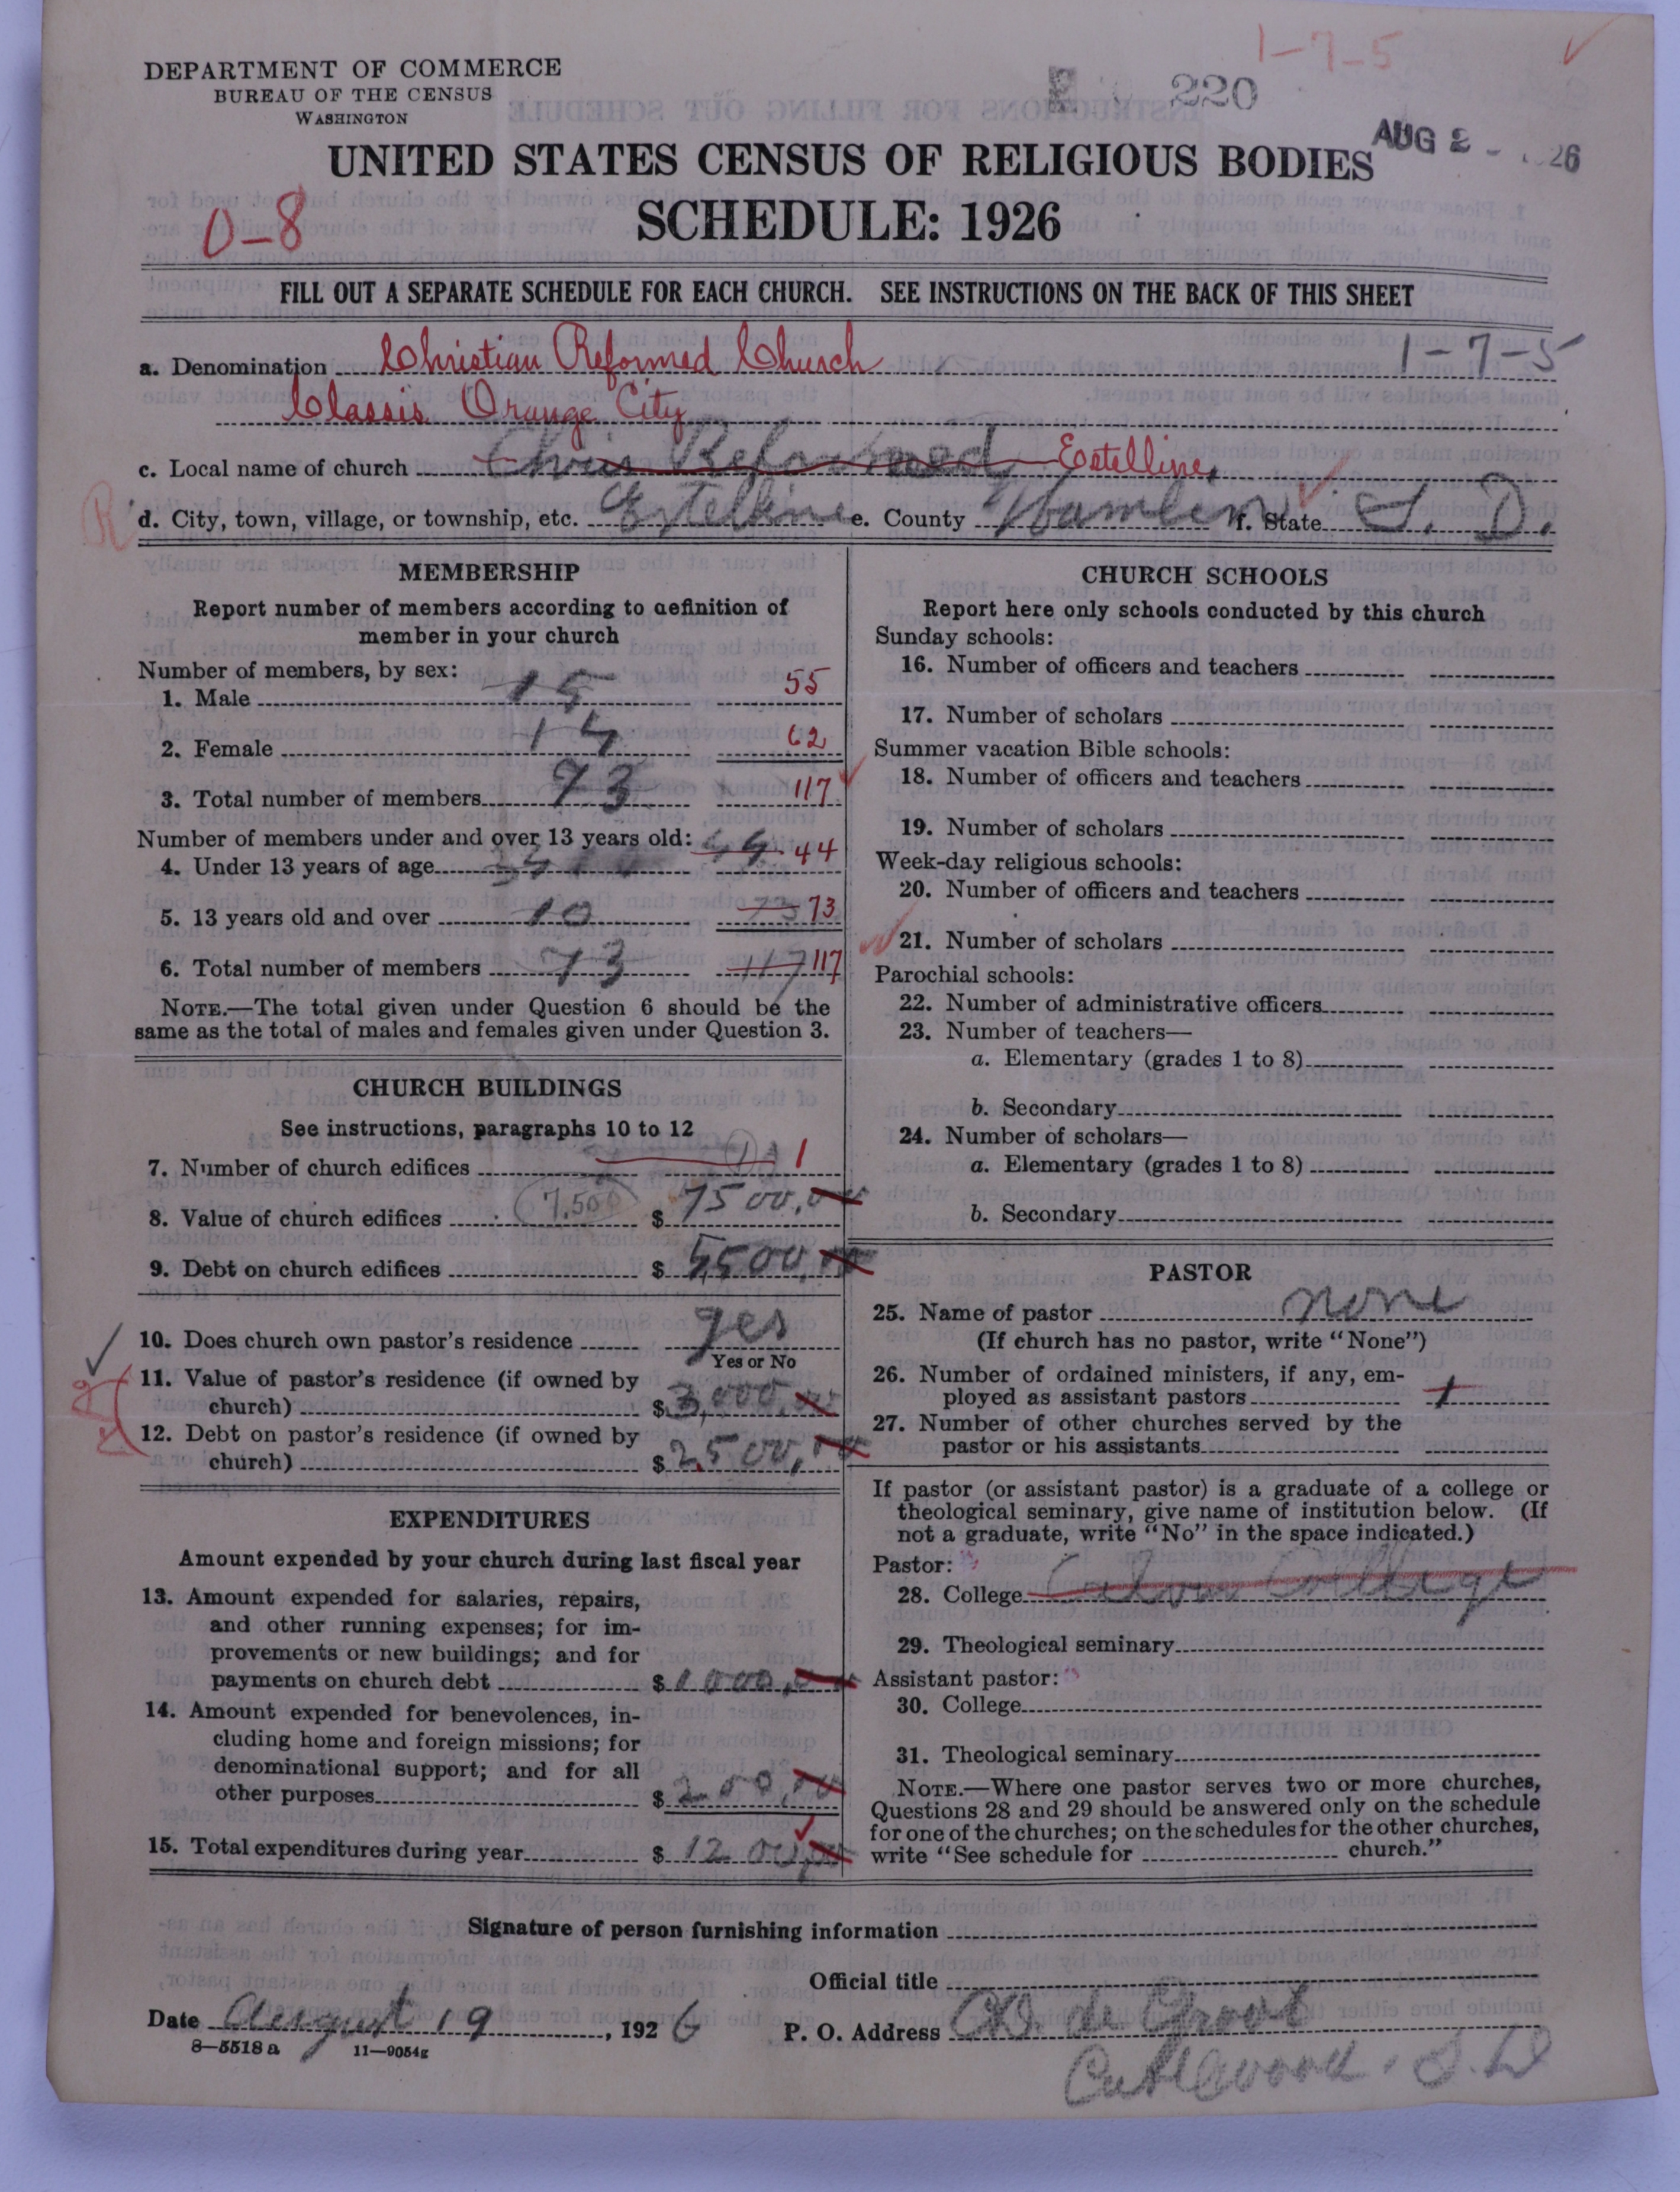 1-7-5
DEPARTMENT OF COMMERCE
BUREAU OF THE CENSUS
WASHINGTON
220
AUG 2 - 26
UNITED STATES CENSUS OF RELIGIOUS BODIES
0-8
SCHEDULE: 1926
FILL OUT A SEPARATE SCHEDULE FOR EACH CHURCH. SEE INSTRUCTIONS ON THE BACK OF THIS SHEET
a. Denomination Christian Reformed Church 1-7-5
Classis Orange City
c. Local name of church Chris Reformed Estelline,
R d. City, town, village, or township, etc. Estelline e. County Hamlin f. State S. D.
MEMBERSHIP
Report number of members according to definition of
member in your church
Number of members, by sex:
1. Male 15 55
2. Female 14 62
3. Total number of members 73 117
Number of members under and over 13 years old: 44 44
4. Under 13 years of age
5. 13 years old and over 10 73 73
6. Total number of members 73 117 117
NOTE.—The total given under Question 6 should be the
same as the total of males and females given under Question 3.
CHURCH BUILDINGS
See instructions, paragraphs 10 to 12
7. Number of church edifices 1 1
8. Value of church edifices 7,500 $ 7500,00
9. Debt on church edifices $ 5500,00
10. Does church own pastor's residence yes
Yes or No
11. Value of pastor's residence (if owned by
church) $ 3,000,00
12. Debt on pastor's residence (if owned by
church) $ 2,500,00
EXPENDITURES
Amount expended by your church during last fiscal year
13. Amount expended for salaries, repairs,
and other running expenses; for im-
provements or new buildings; and for
payments on church debt $ 1000,00
14. Amount expended for benevolences, in-
cluding home and foreign missions; for
denominational support; and for all
other purposes $ 200,00
15. Total expenditures during year $ 1200,00
CHURCH SCHOOLS
Report here only schools conducted by this church
Sunday schools:
16. Number of officers and teachers
17. Number of scholars
Summer vacation Bible schools:
18. Number of officers and teachers
19. Number of scholars
Week-day religious schools:
20. Number of officers and teachers
21. Number of scholars
Parochial schools:
22. Number of administrative officers
23. Number of teachers—
a. Elementary (grades 1 to 8)
b. Secondary
24. Number of scholars—
a. Elementary (grades 1 to 8)
b. Secondary
PASTOR
25. Name of pastor none
(If church has no pastor, write "None")
26. Number of ordained ministers, if any, em-
ployed as assistant pastors 1
27. Number of other churches served by the
pastor or his assistants
If pastor (or assistant pastor) is a graduate of a college or
theological seminary, give name of institution below. (If
not a graduate, write "No" in the space indicated.)
Pastor:
28. College Calvin College
29. Theological seminary
Assistant pastor:
30. College
31. Theological seminary
NOTE.—Where one pastor serves two or more churches,
Questions 28 and 29 should be answered only on the schedule
for one of the churches; on the schedules for the other churches,
write "See schedule for church."
Signature of person furnishing information
Official title
Date August 19, 1926 P. O. Address de Groot
8—5518 a 11—9054g
Castlewood, S. D